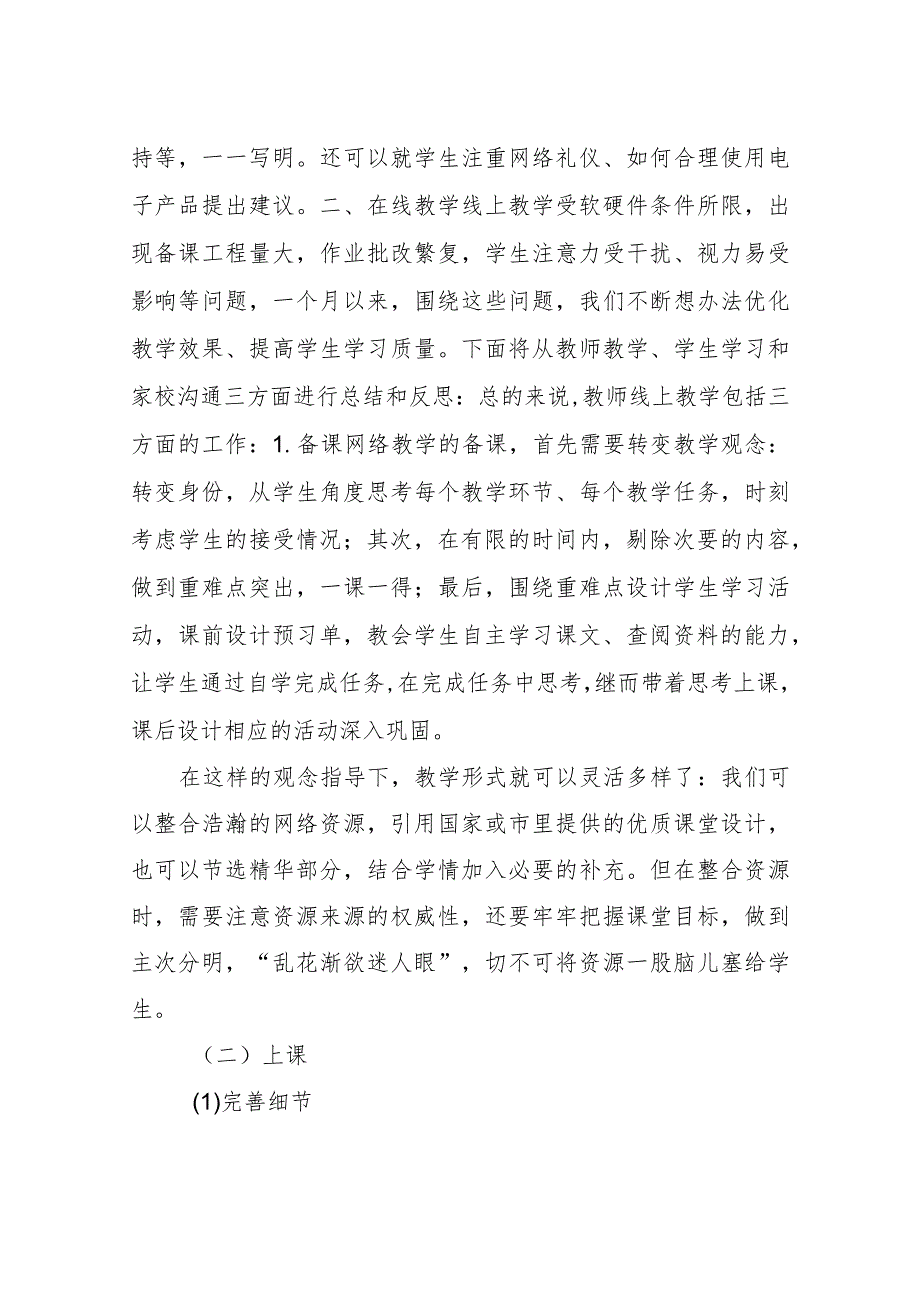 持等，一一写明。还可以就学生注重网络礼仪、如何合理使用电
子产品提出建议。二、在线教学线上教学受软硬件条件所限，出
现备课工程量大，作业批改繁复，学生注意力受干扰、视力易受
影响等问题，一个月以来，围绕这些问题，我们不断想办法优化
教学效果、提高学生学习质量。下面将从教师教学、学生学习和
家校沟通三方面进行总结和反思：总的来说,教师线上教学包括三
方面的工作：1.备课网络教学的备课，首先需要转变教学观念：
转变身份，从学生角度思考每个教学环节、每个教学任务，时刻
考虑学生的接受情况；其次，在有限的时间内，剔除次要的内容，
做到重难点突出，一课一得；最后，围绕重难点设计学生学习活
动，课前设计预习单，教会学生自主学习课文、查阅资料的能力，
让学生通过自学完成任务,在完成任务中思考,继而带着思考上课，
课后设计相应的活动深入巩固。
在这样的观念指导下，教学形式就可以灵活多样了：我们可
以整合浩瀚的网络资源，引用国家或市里提供的优质课堂设计，
也可以节选精华部分，结合学情加入必要的补充。但在整合资源
时，需要注意资源来源的权威性，还要牢牢把握课堂目标，做到
主次分明，“乱花渐欲迷人眼”，切不可将资源一股脑儿塞给学
生。
（二）上课
(1)完善细节